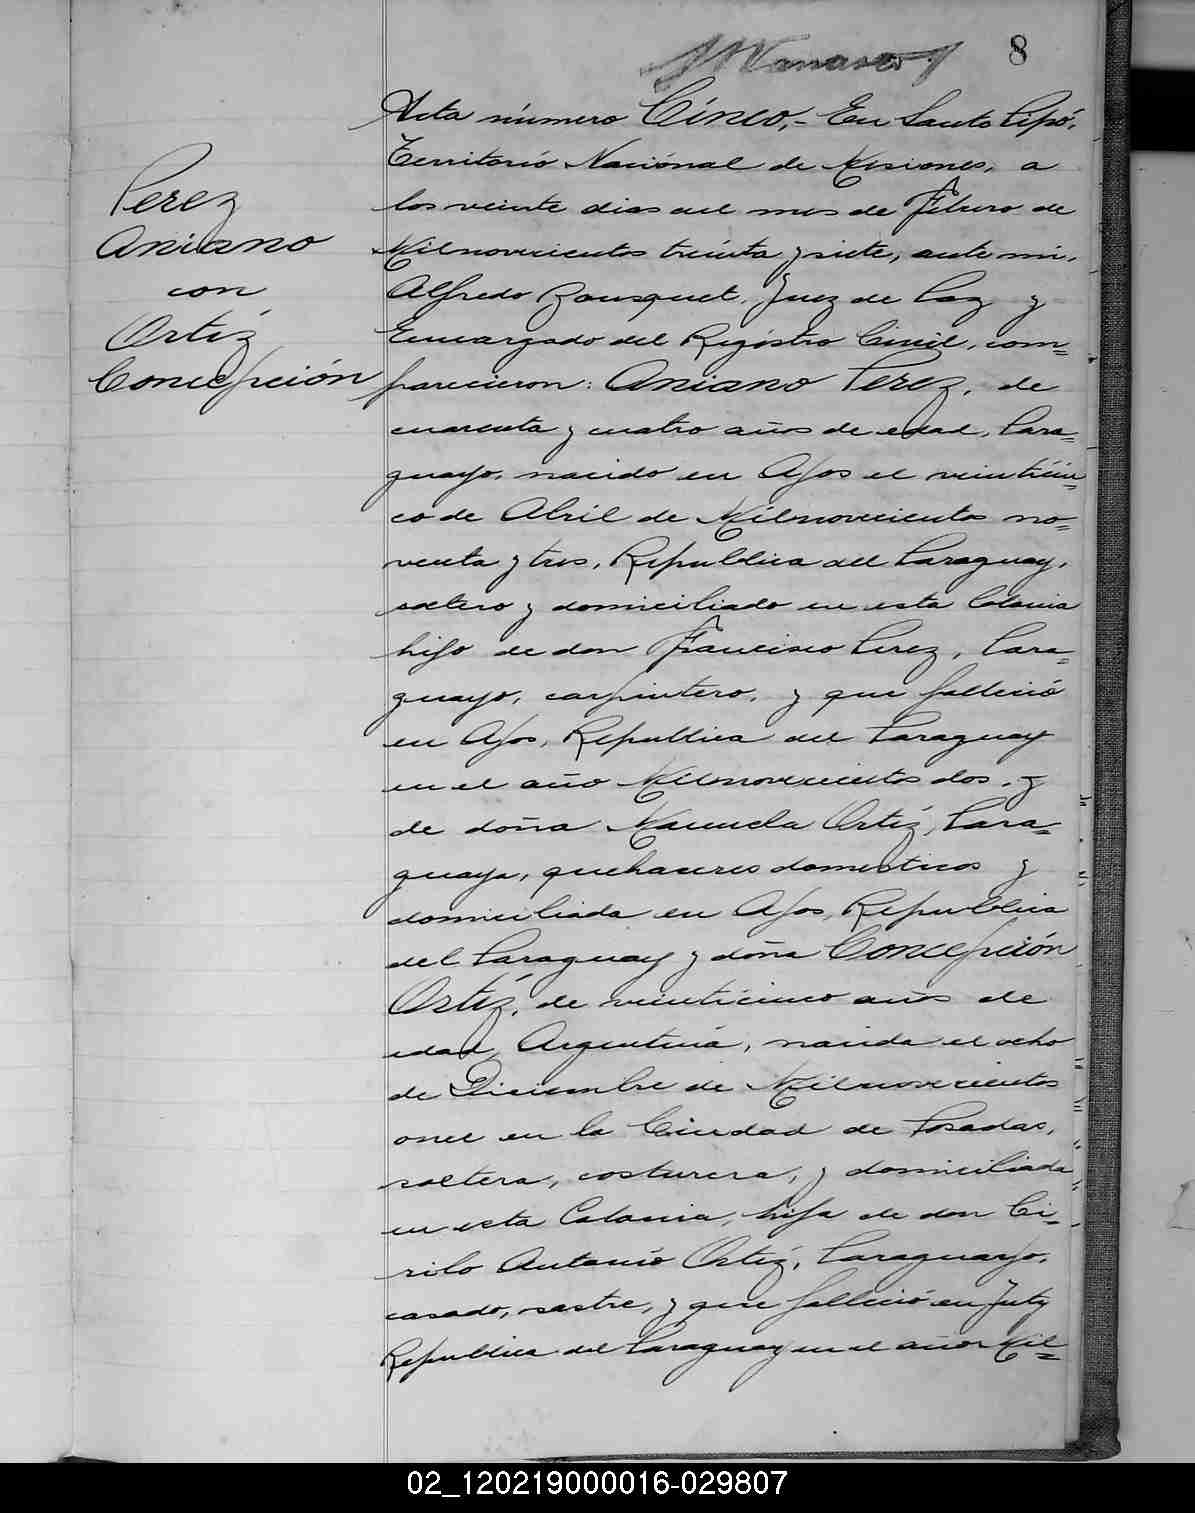 8
Acta número Cinco,- En Santo Pipó,
Territorio Nacional de Misiones, a
los veinte dias del mes de Febrero de
Milnovecientos treinta y siete, ante mi,
Alfredo Bousquet, Juez de Paz y
Encargado del Registro Civil, com=
parecieron: Aniano Perez, de
cuarenta y cuatro años de edad, Para=
guayo, nacido en Ajos el veinticin=
co de Abril de Milnovecientos no=
venta y tres, Republica del Paraguay,
soltero y domiciliado en esta Colonia
hijo de don Francisco Perez, Para=
guayo, carpintero, y que falleció
en Ajos, Republica del Paraguay
en el año Milnovecientos dos, y
de doña Manuela Ortiz, Para=
guaya, quehaceres domesticos y
domiciliada en Ajos, Republica
del Paraguay y doña Concepción
Ortiz, de veinticinco años de
edad, Argentina, nacida el ocho
de Diciembre de Milnovecientos
once en la Ciudad de Posadas,
soltera, costurera, y domiciliada
en esta Colonia, hija de don Ci=
rilo Antonio Ortiz, Paraguayo,
casado, sastre, y que falleció en Yuty
Republica del Paraguay en el año Mil=
Perez
Aniano
con
Ortiz
Concepción
02_120219000016-029807